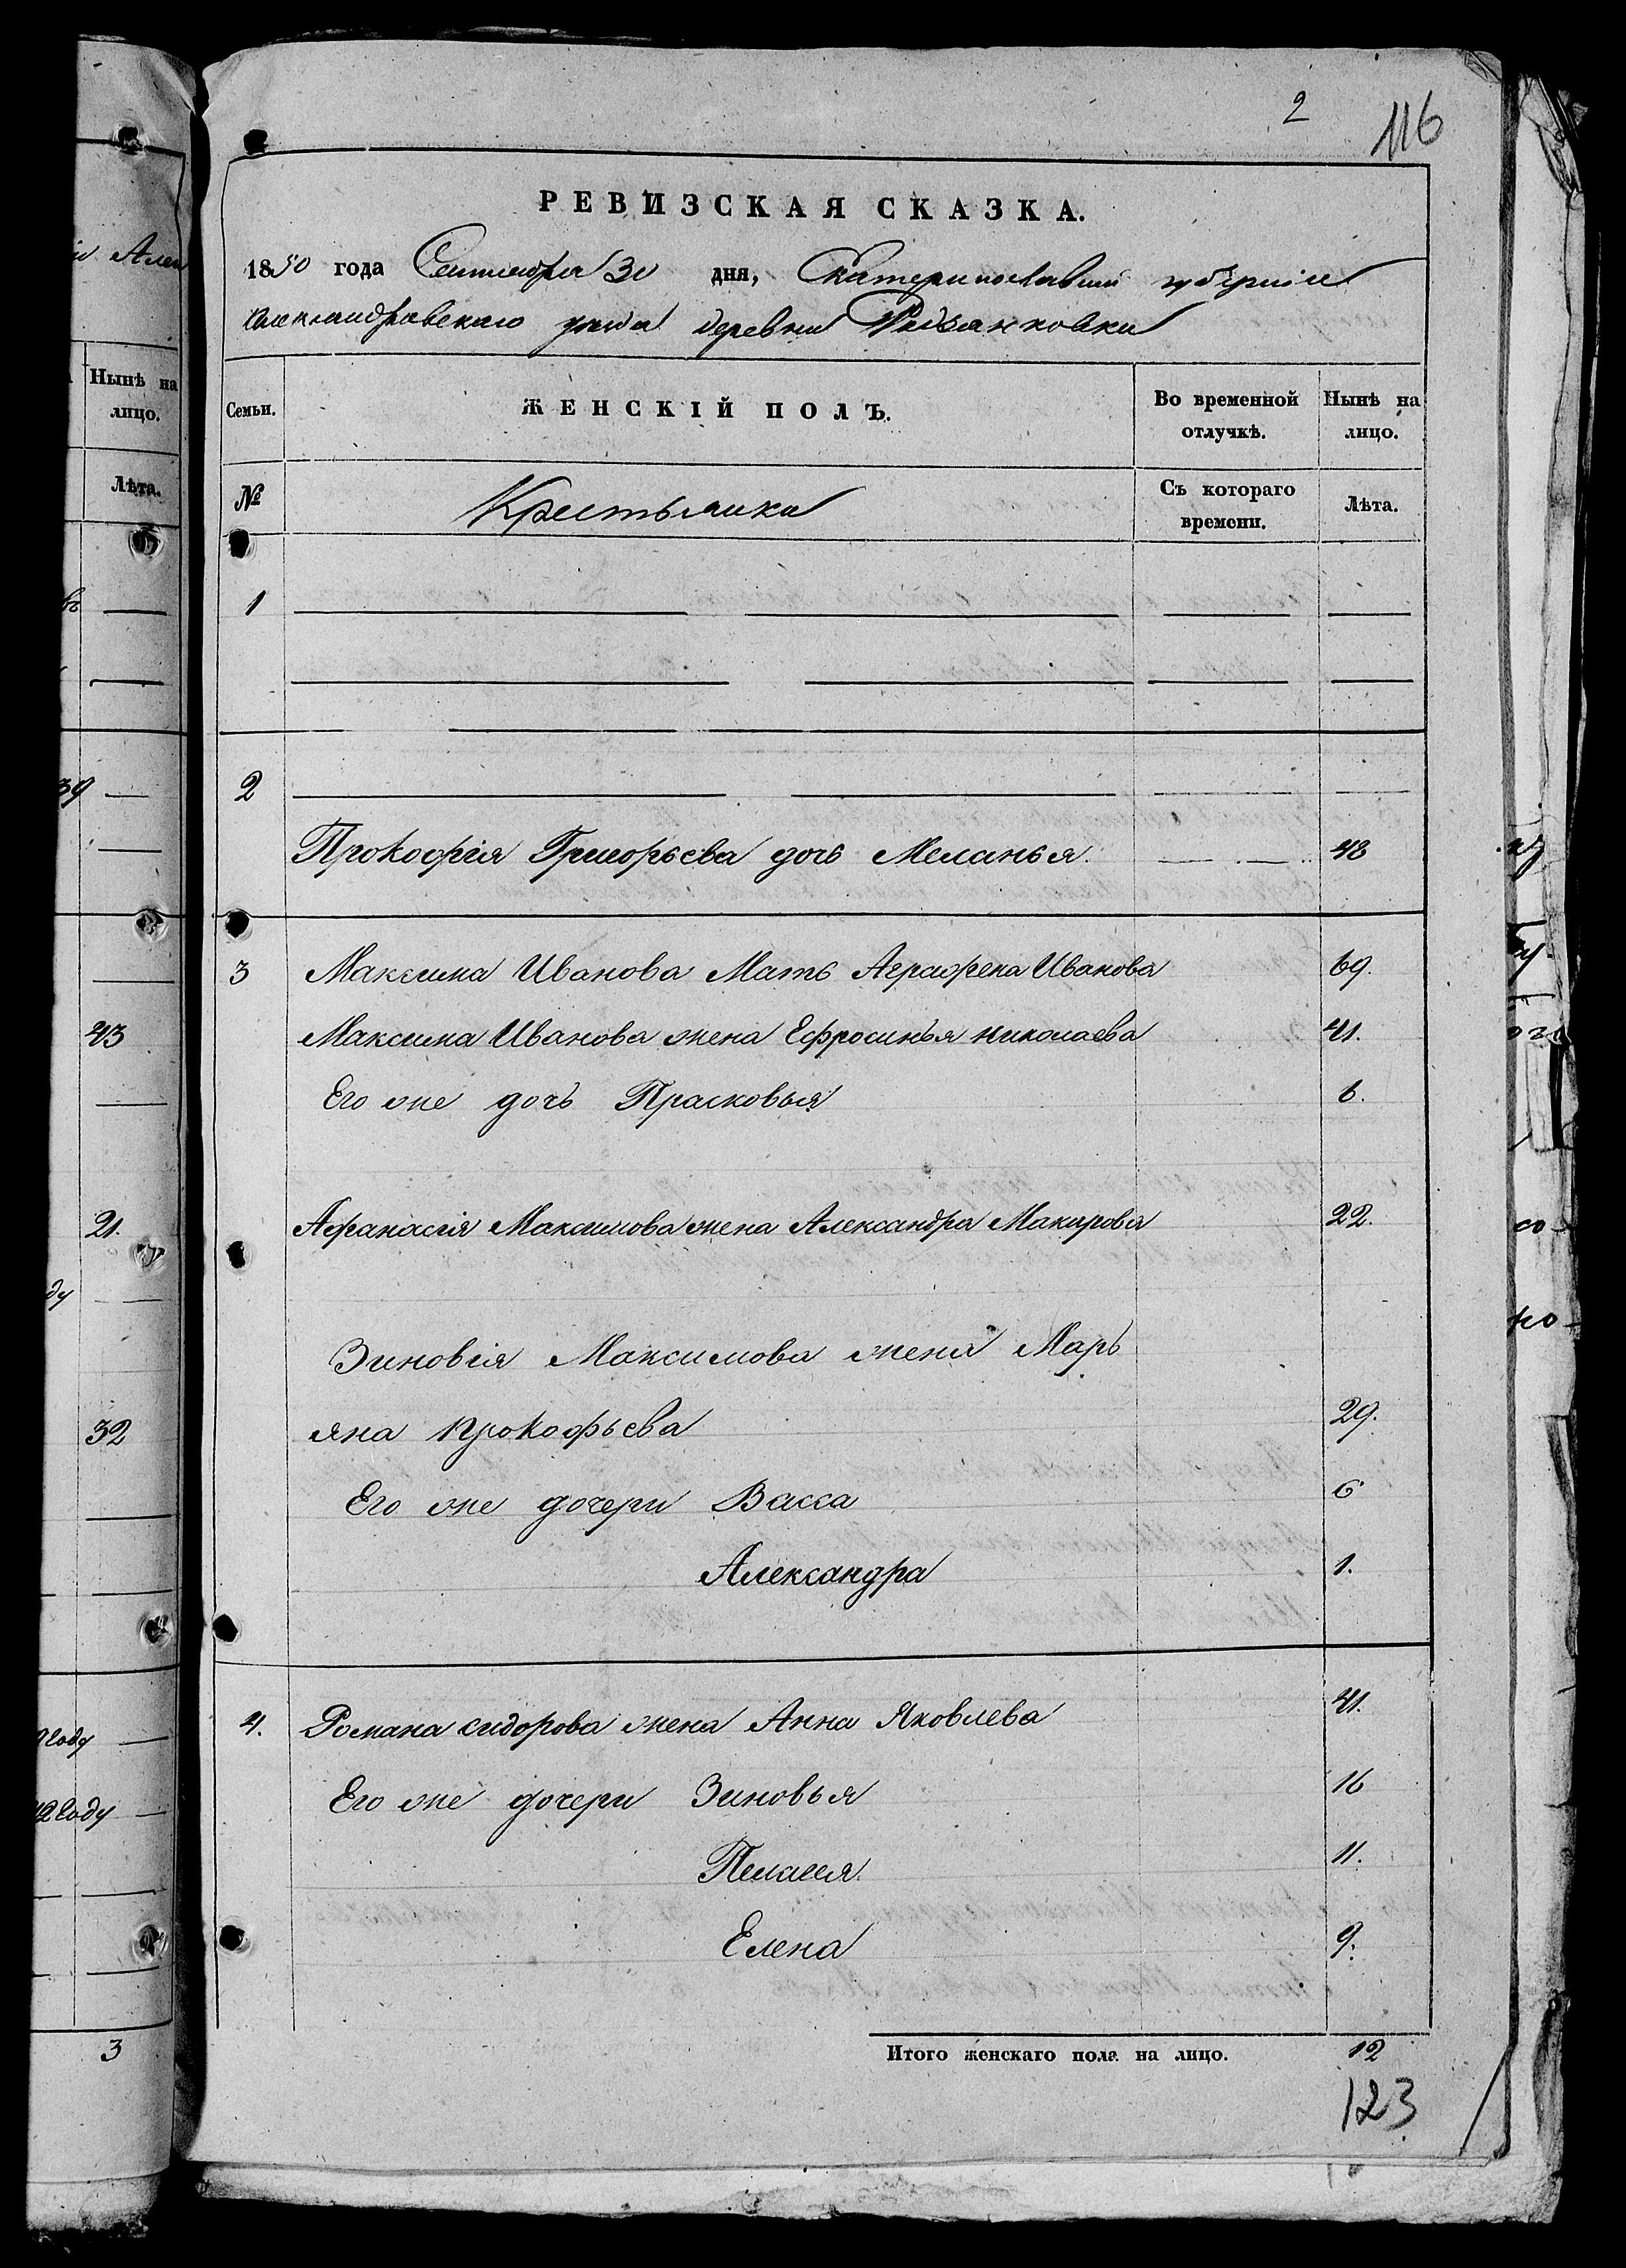 2
116
РЕВИЗСКАЯ СКАЗКА.
1850 года Сентября 30 дня, Екатеринославской губернiи
Александровскаго уезда деревни
Семьи. ЖЕНСКІЙ ПОЛЪ. Во временной отлучкѣ. Нынѣ на лицо.
№ Крестьянки Съ котораго времени. Лѣта.
1
2
Прокофія Григорьева дочь Меланья 48
3 Максима Иванова Мать Аграфена Иванова 69.
Максима Иванова жена Ефросинья николаева 41.
Его же дочь Прасковья 6.
Афанасія Максимова жена Александра Макарова 22.
Зиновія Максимова жена Марь
яна прокофьева 29.
Его же дочери Васса 6
Александра 1.
4. Романа сидорова жена Анна Яковлева 41.
Его же дочери Зиновья 16
Пелагея 11.
Елена 9.
Итого женскаго пола на лицо. 12
123
Нынѣ на
лицо.
Лѣта.
39
43
21.
ду
32
году
42 году
3